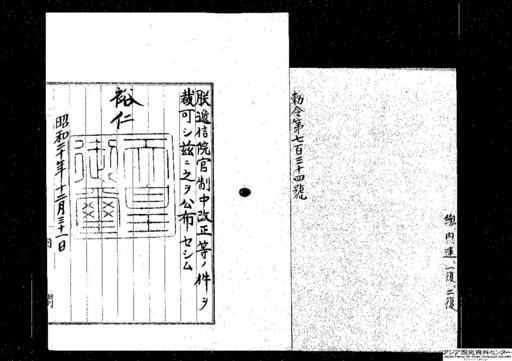 總、内、運、一復、二復
勅令第七百三十四號
朕逓信院官制中改正等ノ件ヲ
裁可シ茲ニ之ヲ公布セシム
裕仁
天皇御璽
昭和二十年十二月三十一日
内閣
アジア歴史資料センター